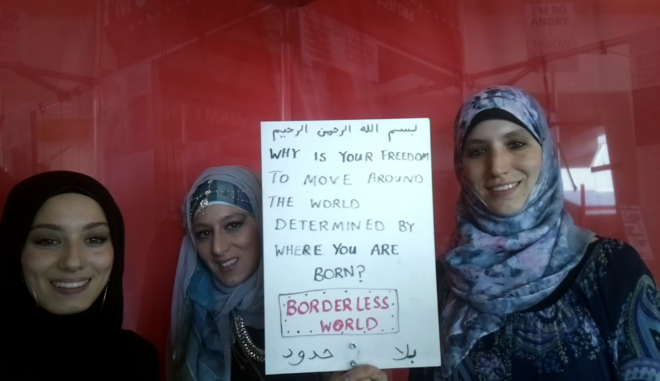 بسم الله الرحمن الرحيم
WHY IS YOUR FREEDOM
TO MOVE AROUND
THE WORLD
DETERMINED BY
WHERE YOU ARE
BORN?
BORDERLESS
WORLD
بلا حدود
I'M SO
ANGRY